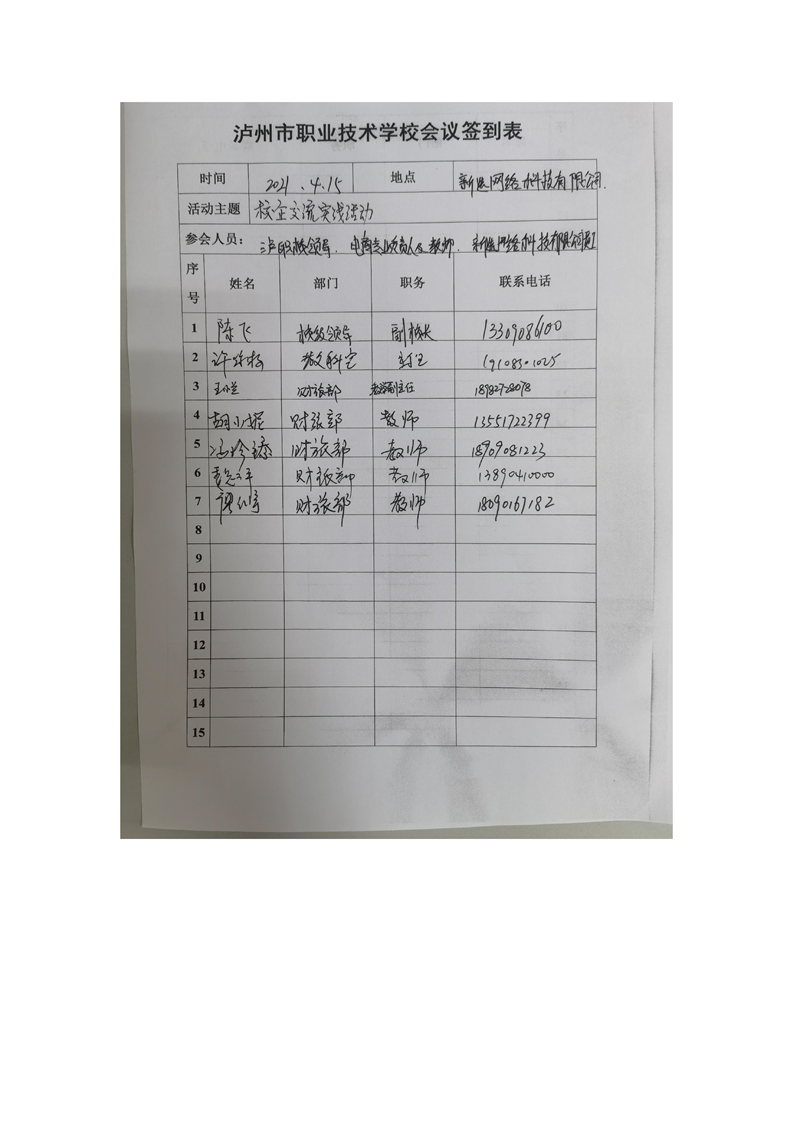 泸州市职业技术学校会议签到表
时间 2021.4.15 地点 新思网络科技有限公司
活动主题 校企交流实践活动
参会人员： 泸职校领导、电商专业负责人及教师、新思网络科技有限公司员工
序号 姓名 部门 职务 联系电话
1 陈飞 校级领导 副校长 13309086100
2 教科室 主任 19108301025
3 财旅部 教学副主任 18982728078
4 胡小妮 财旅部 教师 13551722399
5 财旅部 教师 18909081223
6 财旅部 教师 13890410000
7 财旅部 教师 18090167182
8
9
10
11
12
13
14
15